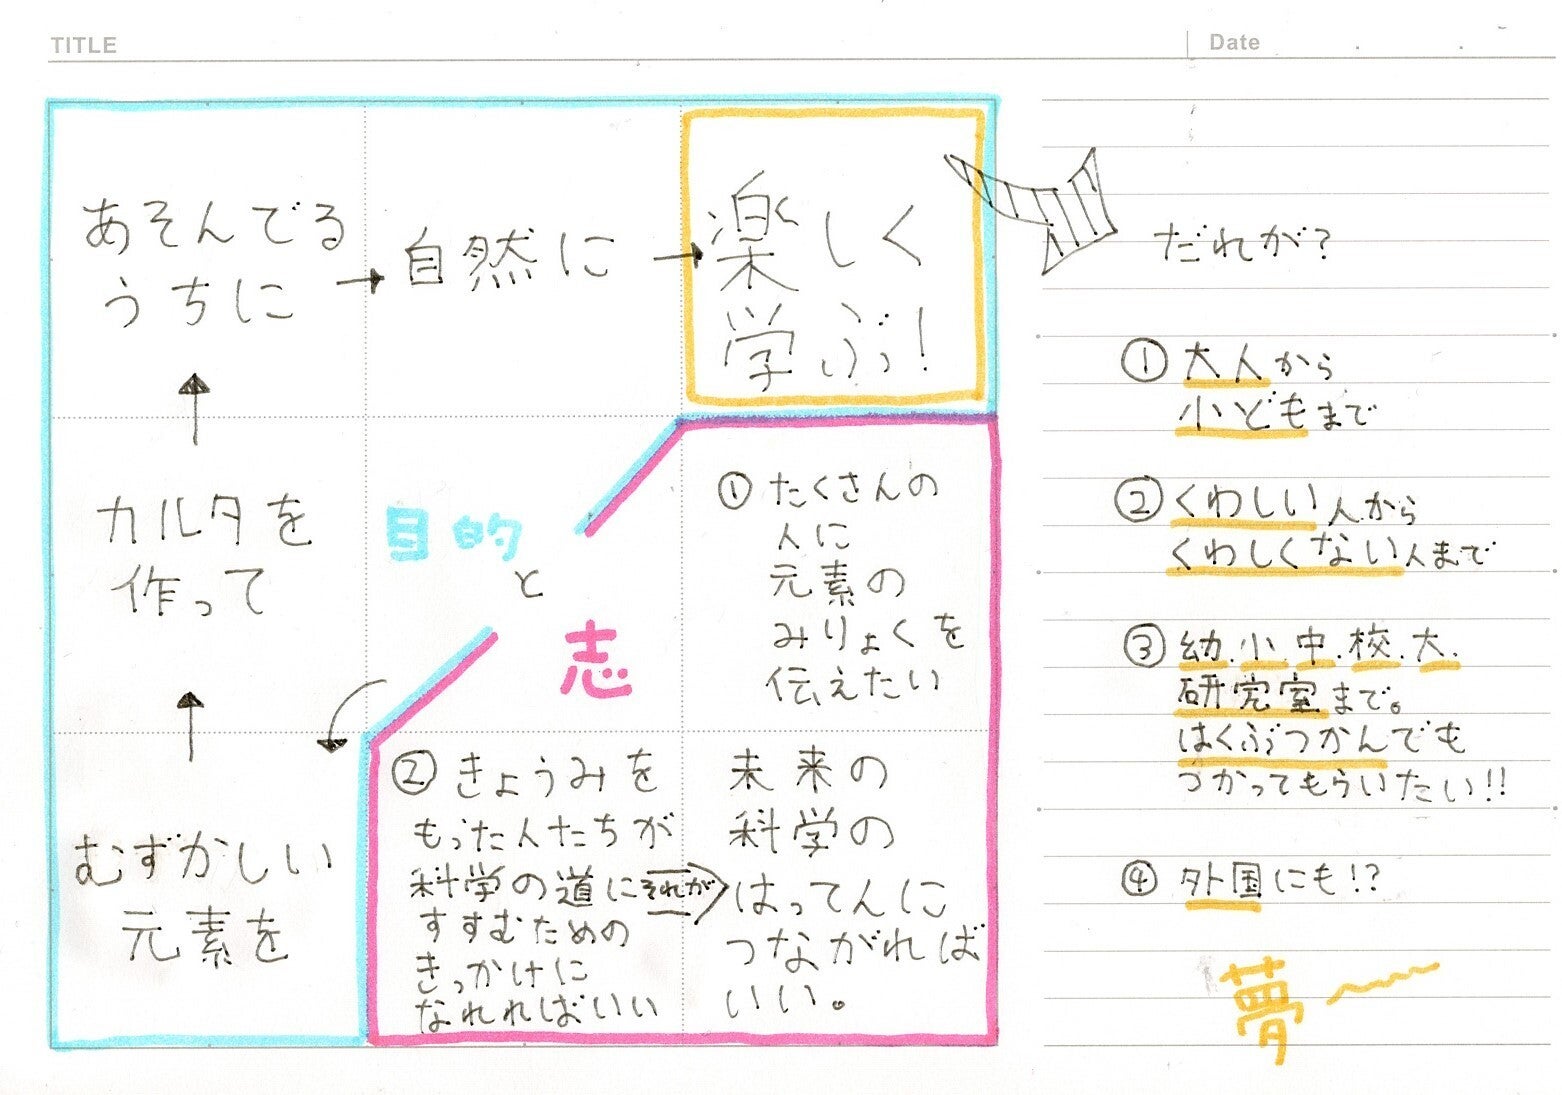 TITLE
Date
目的
と
志
むずかしい
元素を
カルタを
作って
あそんでる
うちに
自然に
楽しく
学ぶ!
①たくさんの
人に
元素の
みりょくを
伝えたい
②きょうみを
もった人たちが
科学の道に
すすむための
きっかけに
なれればいい
それが
未来の
科学の
はってんに
つながれば
いい。
だれが?
①大人から
小どもまで
②くわしい人から
くわしくない人まで
③幼.小.中.校.大.
研究室まで。
はくぶつかんでも
つかってもらいたい!!
④外国にも!?
夢